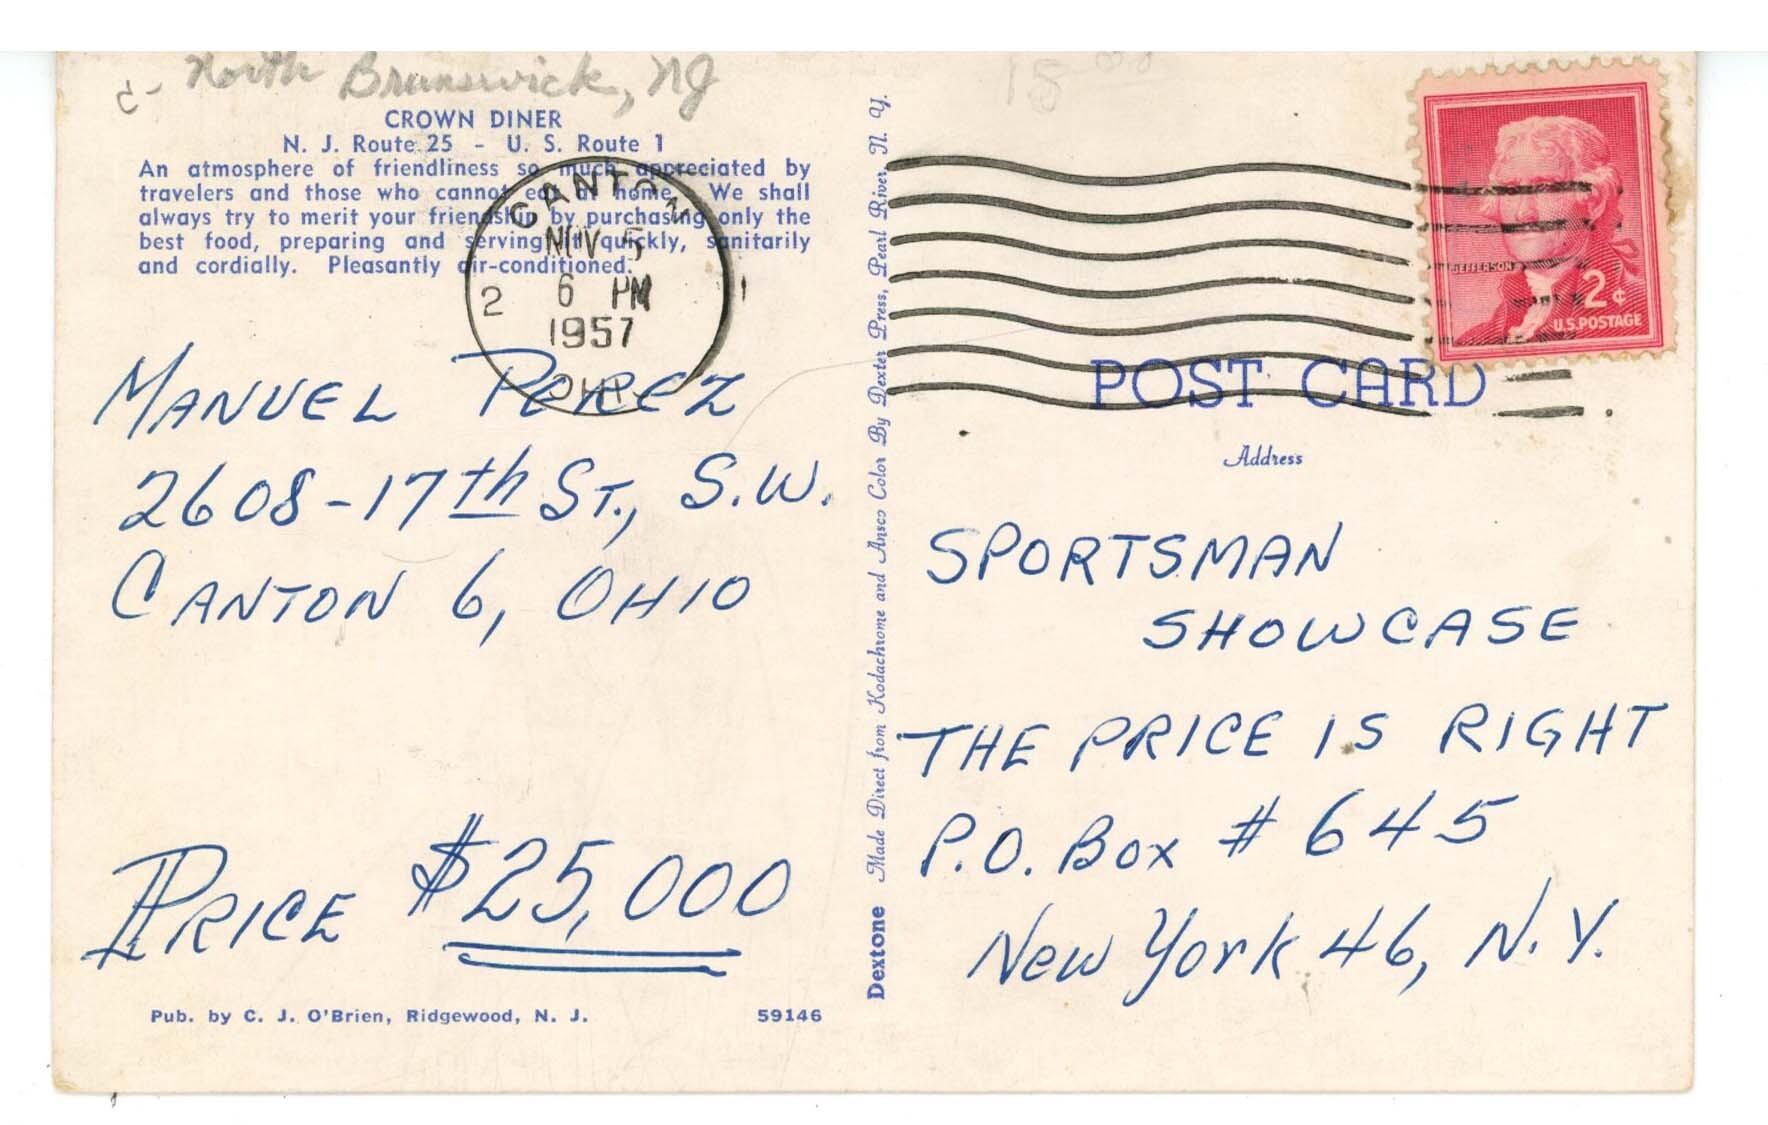 c- North Brunswick, NJ
15.00
CROWN DINER
N. J. Route 25 - U. S. Route 1
An atmosphere of friendliness so much appreciated by
travelers and those who cannot eat at home. We shall
always try to merit your friendship by purchasing only the
best food, preparing and serving it quickly, sanitarily
and cordially. Pleasantly air-conditioned.
CANTON
NOV 5
6 PM
1957
2
OHIO
MANUEL PEREZ
2608-17th ST., S.W.
CANTON 6, OHIO
PRICE $25,000
Pub. by C. J. O'Brien, Ridgewood, N. J. 59146
Dextone Made Direct from Kodachrome and Ansco Color By Dexter Press, Pearl River, N. Y.
JEFFERSON
2¢
U.S. POSTAGE
POST CARD
Address
SPORTSMAN
SHOWCASE
THE PRICE IS RIGHT
P.O. BOX # 645
New York 46, N.Y.